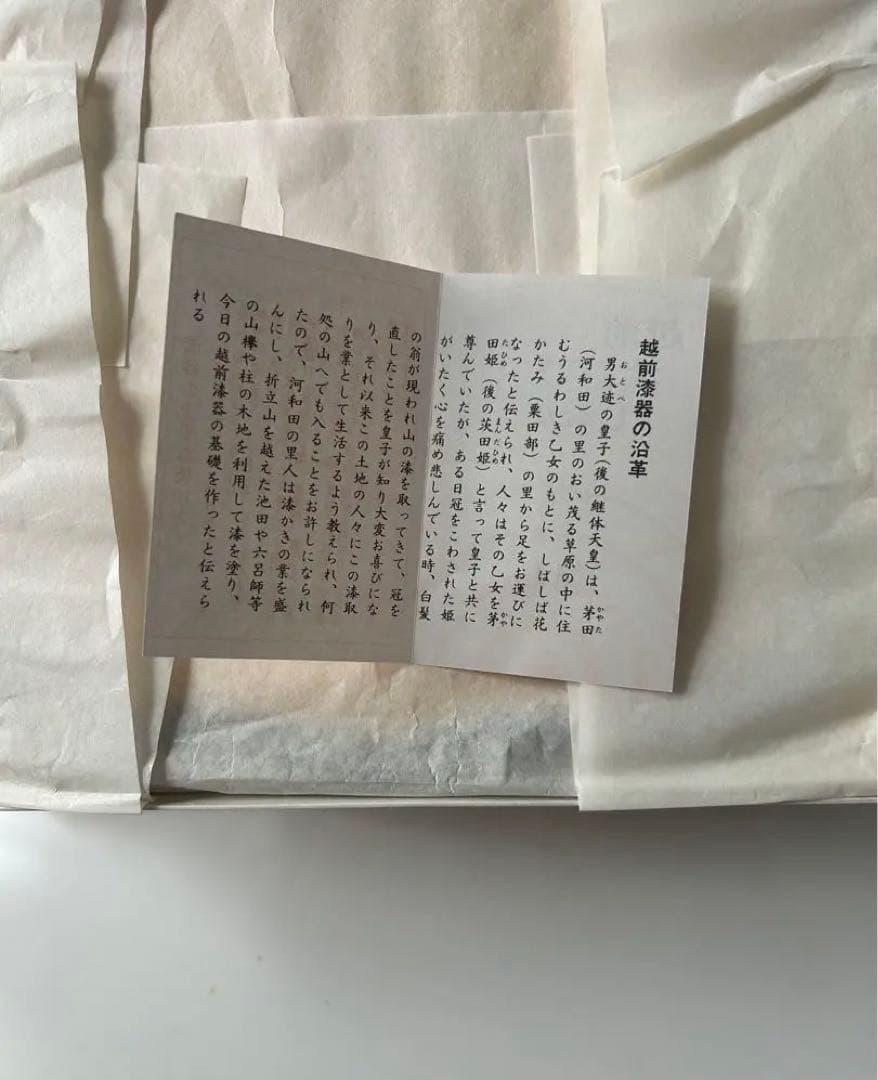 越前漆器の沿革
おとべ
男大迹の皇子(後の継体天皇)は、茅田
かやた
(河和田)の里のおい茂る草原の中に住
むうるわしき乙女のもとに、しばしば花
かたみ(粟田部)の里から足をお運びに
なったと伝えられ、人々はその乙女を茅
かや
田姫(後の茨田姫)と言って皇子と共に
たひめ
まんだひめ
尊んでいたが、ある日冠をこわされた姫
がいたく心を痛め悲しんでいる時、白髪
の翁が現われ山の漆を取ってきて、冠を
直したことを皇子が知り大変お喜びにな
り、それ以来この土地の人々にこの漆取
りを業として生活するよう教えられ、何
処の山へでも入ることをお許しになられ
たので、河和田の里人は漆かきの業を盛
んにし、折立山を越えた池田や六呂師等
の山欅や柱の木地を利用して漆を塗り、
今日の越前漆器の基礎を作ったと伝えら
れる